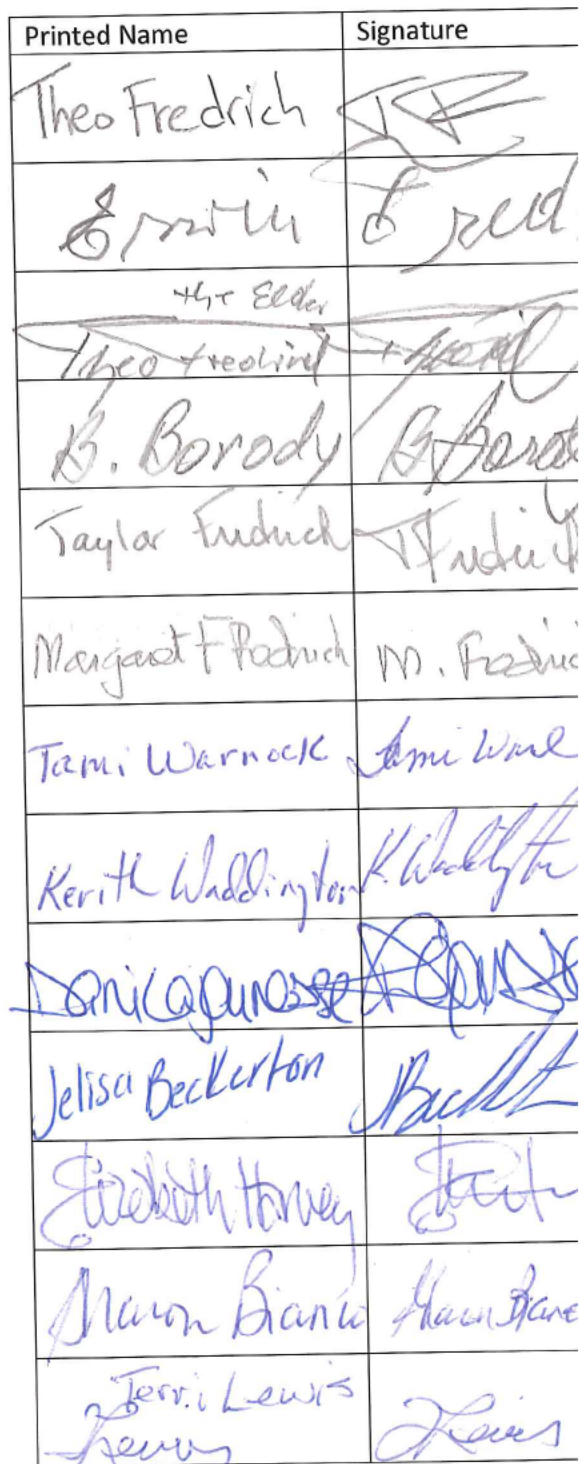 Printed Name Signature
Theo Fredrich TF
Erwin Fred
the Elder
Theo Fredrich
B. Borody B. Borod
Taylor Fredrich T Fredrich
Margaret Fredrich M. Fredric
Tami Warnock Tami Warn
Kerith Waddington K. Waddington
Danica
Jelisa Beckerton
Elizabeth Harvey
Sharon Bianco Sharon Bianc
Terri Lewis
Lewis Lewis